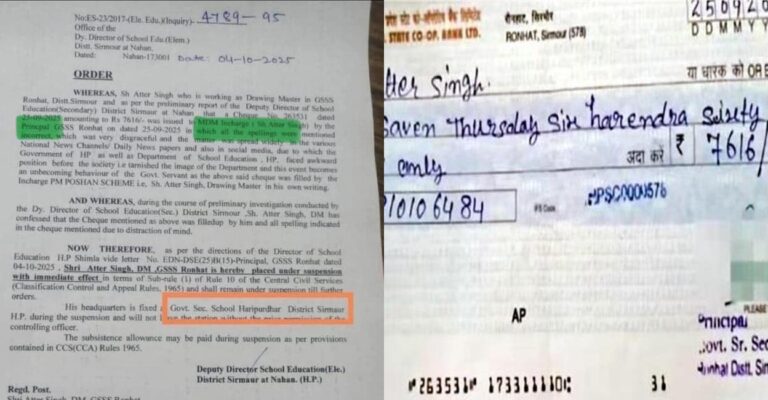 No:ES-23/2017-(Ele. Edu.)(Inquiry)- 4789-95
Office of the
Dy. Director of School Edu.(Elem.)
Distt. Sirmour at Nahan.
Dated: Nahan-173001 Date: 04-10-2025
ORDER
WHEREAS, Sh Atter Singh who is working as Drawing Master in GSSS
Ronhat, Distt.Sirmour and as per the preliminary report of the Deputy Director of School
Education(Secondary) District Sirmour at Nahan that a Cheque No. 263531 dated
25-09-2025 amounting to Rs 7616/- was issued to MDM Incharge ( Sh. Atter Singh) by the
Principal GSSS Ronhat on dated 25-09-2025 in which all the spellings were mentioned
incorrect, which was very disgraceful and the matter was spread widely in the various
National News Channels/ Daily News papers and also in social media, due to which the
Government of HP as well as Department of School Education , HP. faced awkward
position before the society i.e tarnished the image of the Department and this event becomes
an unbecoming behaviour of the Govt. Servant as the above said cheque was filled by the
Incharge PM POSHAN SCHEME i.e, Sh. Atter Singh, Drawing Master in his own writing.
AND WHEREAS, during the course of preliminary investigation conducted
by the Dy. Director of School Education(Sec.) District Sirmour ,Sh. Atter Singh, DM has
confessed that the Cheque mentioned as above was filledup by him and all spelling indicated
in the cheque mentioned due to distraction of mind.
NOW THEREFORE, as per the directions of the Director of School
Education H.P Shimla vide letter No. EDN-DSE(25)B(15)-Principal, GSSS Ronhat dated
04-10-2025 , Shri Atter Singh, DM ,GSSS Ronhat is hereby placed under suspension
with immediate effect in terms of Sub-rule (1) of Rule 10 of the Central Civil Services
(Classification Control and Appeal Rules, 1965) and shall remain under suspension till further
orders.
His headquarters is fixed Govt. Sec. School Haripurdhar District Sirmaur
H.P. during the suspension and will not the station without the prior permission of the
controlling officer.
The subsistence allowance may be paid during suspension as per provisions
contained in CCS(CCA) Rules 1965.
Deputy Director School Education(Ele.)
District Sirmaur at Nahan. (H.P.)
Regd. Post.
Shri Atter Singh, DM, GSSS Ronhat
STATE CO-OP. BANK LTD.
रोनहाट, सिरमौर
RONHAT, SIRMOUR (578)
250920
D D M M Y Y
tter Singh.
या धारक को OR BE
Saven Thursday Six harendra Sixty
only
अदा करे ₹ 7616/
1010 6484
IFS Code
HPSC0000576
AP
PLEASE
Principal
Govt. Sr. Sec
Ronhat Distt. Sir
⑈263531⑈ 173311110⑆ 31